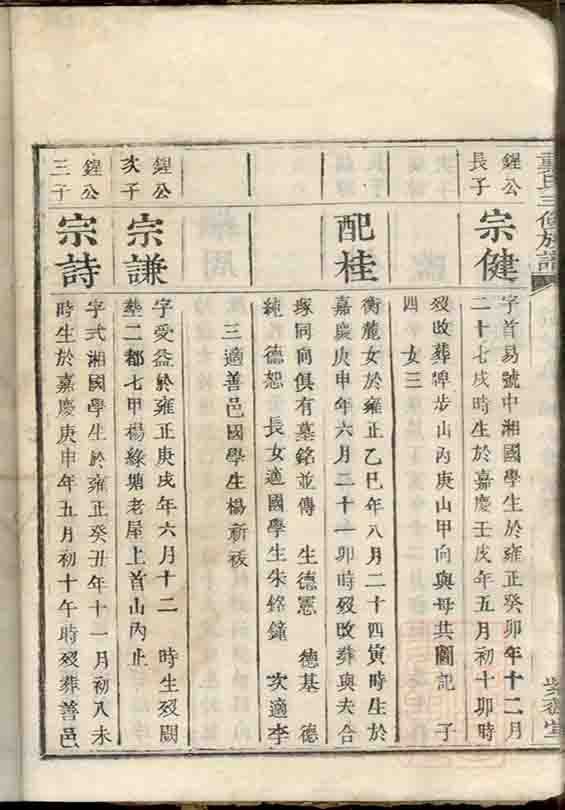 氏三修族譜
鋥公長子
宗健
字首易號中湘國學生於雍正癸卯年十二月
二十七戌時生於嘉慶壬戌年五月初十卯時
歿改葬犂步山內庚山甲向與母共圖記 子
四 女三
配桂
衡蘢女於雍正乙巳年八月二十四寅時生於
嘉慶庚申年六月二十一卯時歿改葬與夫合
塚同向俱有墓銘並傳 生德憲 德基 德
純 德恕 長女適國學生朱銘鐘 次適李
三適善邑國學生楊新祓
鋥公次子
宗謙
字受益於雍正庚戌年六月十二 時生歿闕
塟二都七甲楊綠塘老屋上首山內止
鋥公三子
宗詩
字式湘國學生於雍正癸丑年十一月初八未
時生於嘉慶庚申年五月初十午時歿葬善邑